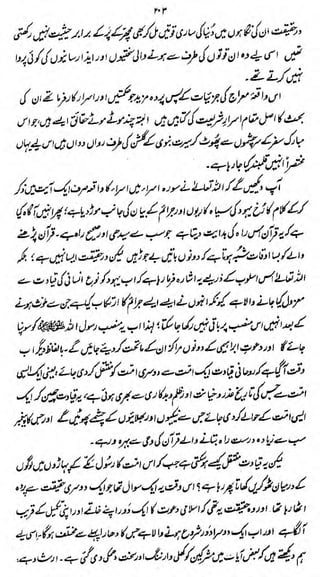 ۲۰۳
درحقیقت ان کی نگاہوں میں دُنیا کی ساری قوتیں مل کر بھی مچھر کے پَر کے برابر حیثیت نہیں رکھتی
تھیں۔ اسی لیے وہ ان قوتوں کی طرف سے ہونے والی سختیوں اور ایذا رسانیوں کی کوئی پروا
نہیں کرتے تھے۔
اس واقعۂ معراج کی جزئیات کے پسِ پردہ مزید جو حکمتیں اور اسرار کار فرما تھے ان کی
بحث کا اصل مقام اسرارِ شریعت کی کتابیں ہیں۔ البتہ چند موٹے موٹے حقائق ایسے ہیں جو اس
مبارک سفر کے سرچشموں سے پھوٹ کر سیرتِ نبوی کے گلشن کی طرف رواں دواں ہیں اس لیے یہاں
مختصراً انہیں قلمبند کیا جا رہا ہے۔
آپ دیکھیں گے کہ اللہ تعالیٰ نے سورہ اسراء میں اسراء کا واقعہ صرف ایک آیت میں ذکر
کر کے کلام کا رُخ یہود کی سیاہ کاریوں اور جرائم کے بیان کی جانب موڑ دیا ہے؛ پھر انہیں آگاہ کیا
ہے کہ یہ قرآن اس راہ کی ہدایت دیتا ہے جو سب سے سیدھی اور صحیح راہ ہے۔ قرآن پڑھنے
والے کو بسا اوقات شبہ ہوتا ہے کہ دونوں باتیں بے جوڑ ہیں لیکن درحقیقت ایسا نہیں ہے؛ بلکہ
اللہ تعالیٰ اس اسلوب کے ذریعے یہ اشارہ فرما رہا ہے کہ اب یہود کو نوعِ انسانی کی قیادت سے
معزول کیا جانے والا ہے کیونکہ انہوں نے ایسے ایسے جرائم کا ارتکاب کیا ہے جن سے ملوث ہونے
کے بعد انہیں اس منصب پر باقی نہیں رکھا جا سکتا؛ لہٰذا اب یہ منصب رسول اللہ ﷺ کو سونپا
جائے گا اور دعوتِ ابراہیمی کے دونوں مراکز ان کے ماتحت کر دیئے جائیں گے۔ بالفاظِ دیگر اب
وقت آگیا ہے کہ روحانی قیادت ایک امت سے دوسری امت کو منتقل کر دی جائے، یعنی ایک ایسی
امت سے جس کی تاریخ غدر و خیانت اور ظلم و بدکاری سے بھری ہوئی ہے، یہ قیادت چھین کر ایک
ایسی امت کے حوالے کر دی جائے جس سے نیکیوں اور بھلائیوں کے چشمے پھوٹیں گے اور جس کا پیغمبر
سب سے زیادہ درست راہ بتانے والے قرآن کی وحی سے بہرہ ور ہے۔
لیکن یہ قیادت منتقل کیسے ہو سکتی ہے جب کہ اس امت کا رسول مکے کے پہاڑوں میں لوگوں
کے درمیان ٹھوکریں کھاتا پھر رہا ہے؟ اس وقت یہ ایک سوال تھا جو ایک دوسری حقیقت سے پردہ
اٹھا رہا تھا اور وہ حقیقت یہ تھی کہ اسلامی دعوت کا ایک دَور اپنے خاتمے اور اپنی تکمیل کے قریب
آ لگا ہے اور اب ایک دوسرا دَور شروع ہونے والا ہے جس کا دھارا پہلے سے مختلف ہوگا۔ اسی لیے
ہم دیکھتے ہیں کہ بعض آیات میں مشرکین کو کھلی وارننگ اور سخت دھمکی دی گئی ہے۔ ارشاد ہے،